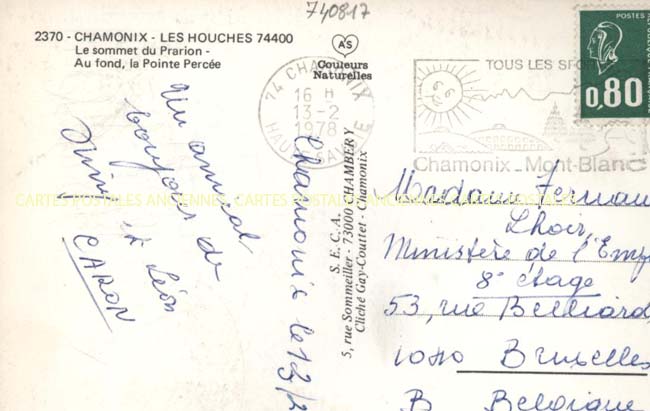 740817
2370 - CHAMONIX - LES HOUCHES 74400
Le sommet du Prarion -
Au fond, la Pointe Percée
AS
Couleurs
Naturelles
74 CHAMONIX
16 H
13-2
1978
HAUTE SAVOIE
TOUS LES SPO
Chamonix_Mont-Blanc
POSTES
0,80
Un amical
bonjour de
et Léon
CARON
Chamonix le 12/2
S.E.C.A.
5, rue Sommeiller - 73000 CHAMBERY
Cliché Gay-Couttet - Chamonix
Madame Fernan
Lhoir,
Ministère de l'Emp
8e étage
53, rue Belliard,
1040 Bruxelles
B Belgique
CARTES POSTALES ANCIENNES CARTES POSTALES ANCIENNES CARTES POSTALES